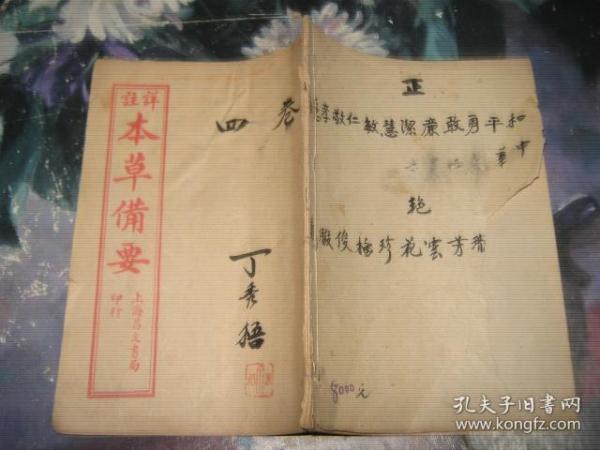 詳註
本草備要
上海昌文書局
印行
卷四
丁秀
正
和平勇敢廉潔慧敏仁敬孝
中華
芳雲花珍梅俊
8000元
孔夫子旧书网
www.kongfz.com